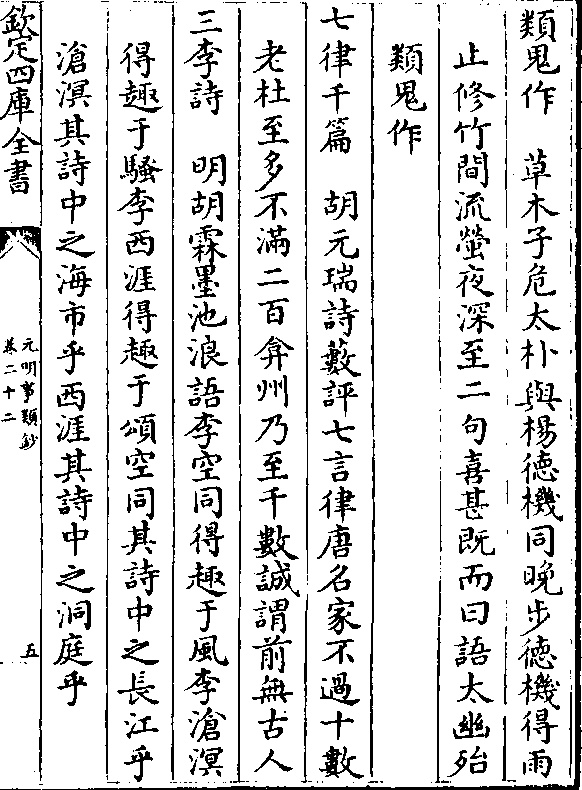 類鬼作　草木子危太朴與楊徳機同晚步徳機得雨
止修竹間流螢夜深至二句喜甚既而曰語太幽殆
類鬼作
七律千篇　胡元瑞詩藪評七言律唐名家不過十數
老杜至多不滿二百弇州乃至千數誠謂前無古人
三李詩　明胡霖墨池浪語李空同得趣于風李滄溟
得趣于騷李西涯得趣于頌空同其詩中之長江乎
滄溟其詩中之海市乎西涯其詩中之洞庭乎
欽定四庫全書
元明事類鈔
卷二十二
五